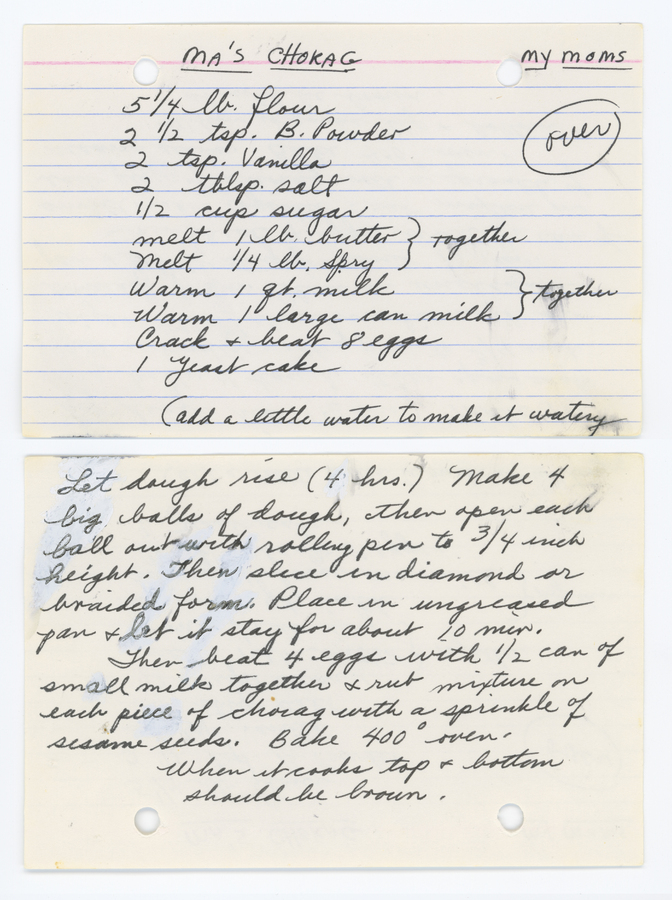 MA'S CHOKAG MY MOMS
5 1/4 lb. flour
2 1/2 tsp. B. Powder
over
2 tsp. Vanilla
2 tblsp. salt
1/2 cup sugar
melt 1 lb. butter } together
Melt 1/4 lb. Spry
Warm 1 qt. milk } together
Warm 1 large can milk
Crack + beat 8 eggs
1 Yeast cake
(add a little water to make it watery
Let dough rise (4 hrs.) Make 4
big balls of dough, then open each
ball out with rolling pen to 3/4 inch
height. Then slice in diamond or
braided form. Place in ungreased
pan + let it stay for about 10 min.
Then beat 4 eggs with 1/2 can of
small milk together + rub mixture on
each piece of chorag with a sprinkle of
sesame seeds. Bake 400° oven.
When it cooks top + bottom
should be brown.